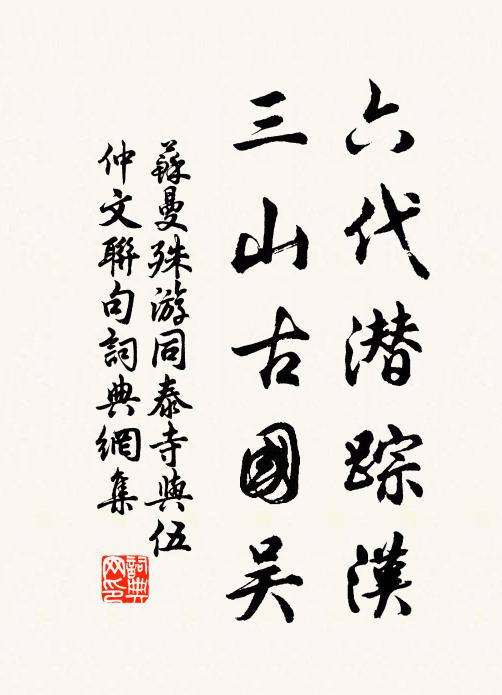 六代潜踪漢
三山古國吴
蘇曼殊游同泰寺與伍
仲文聯句詞典網集
詞典
网印